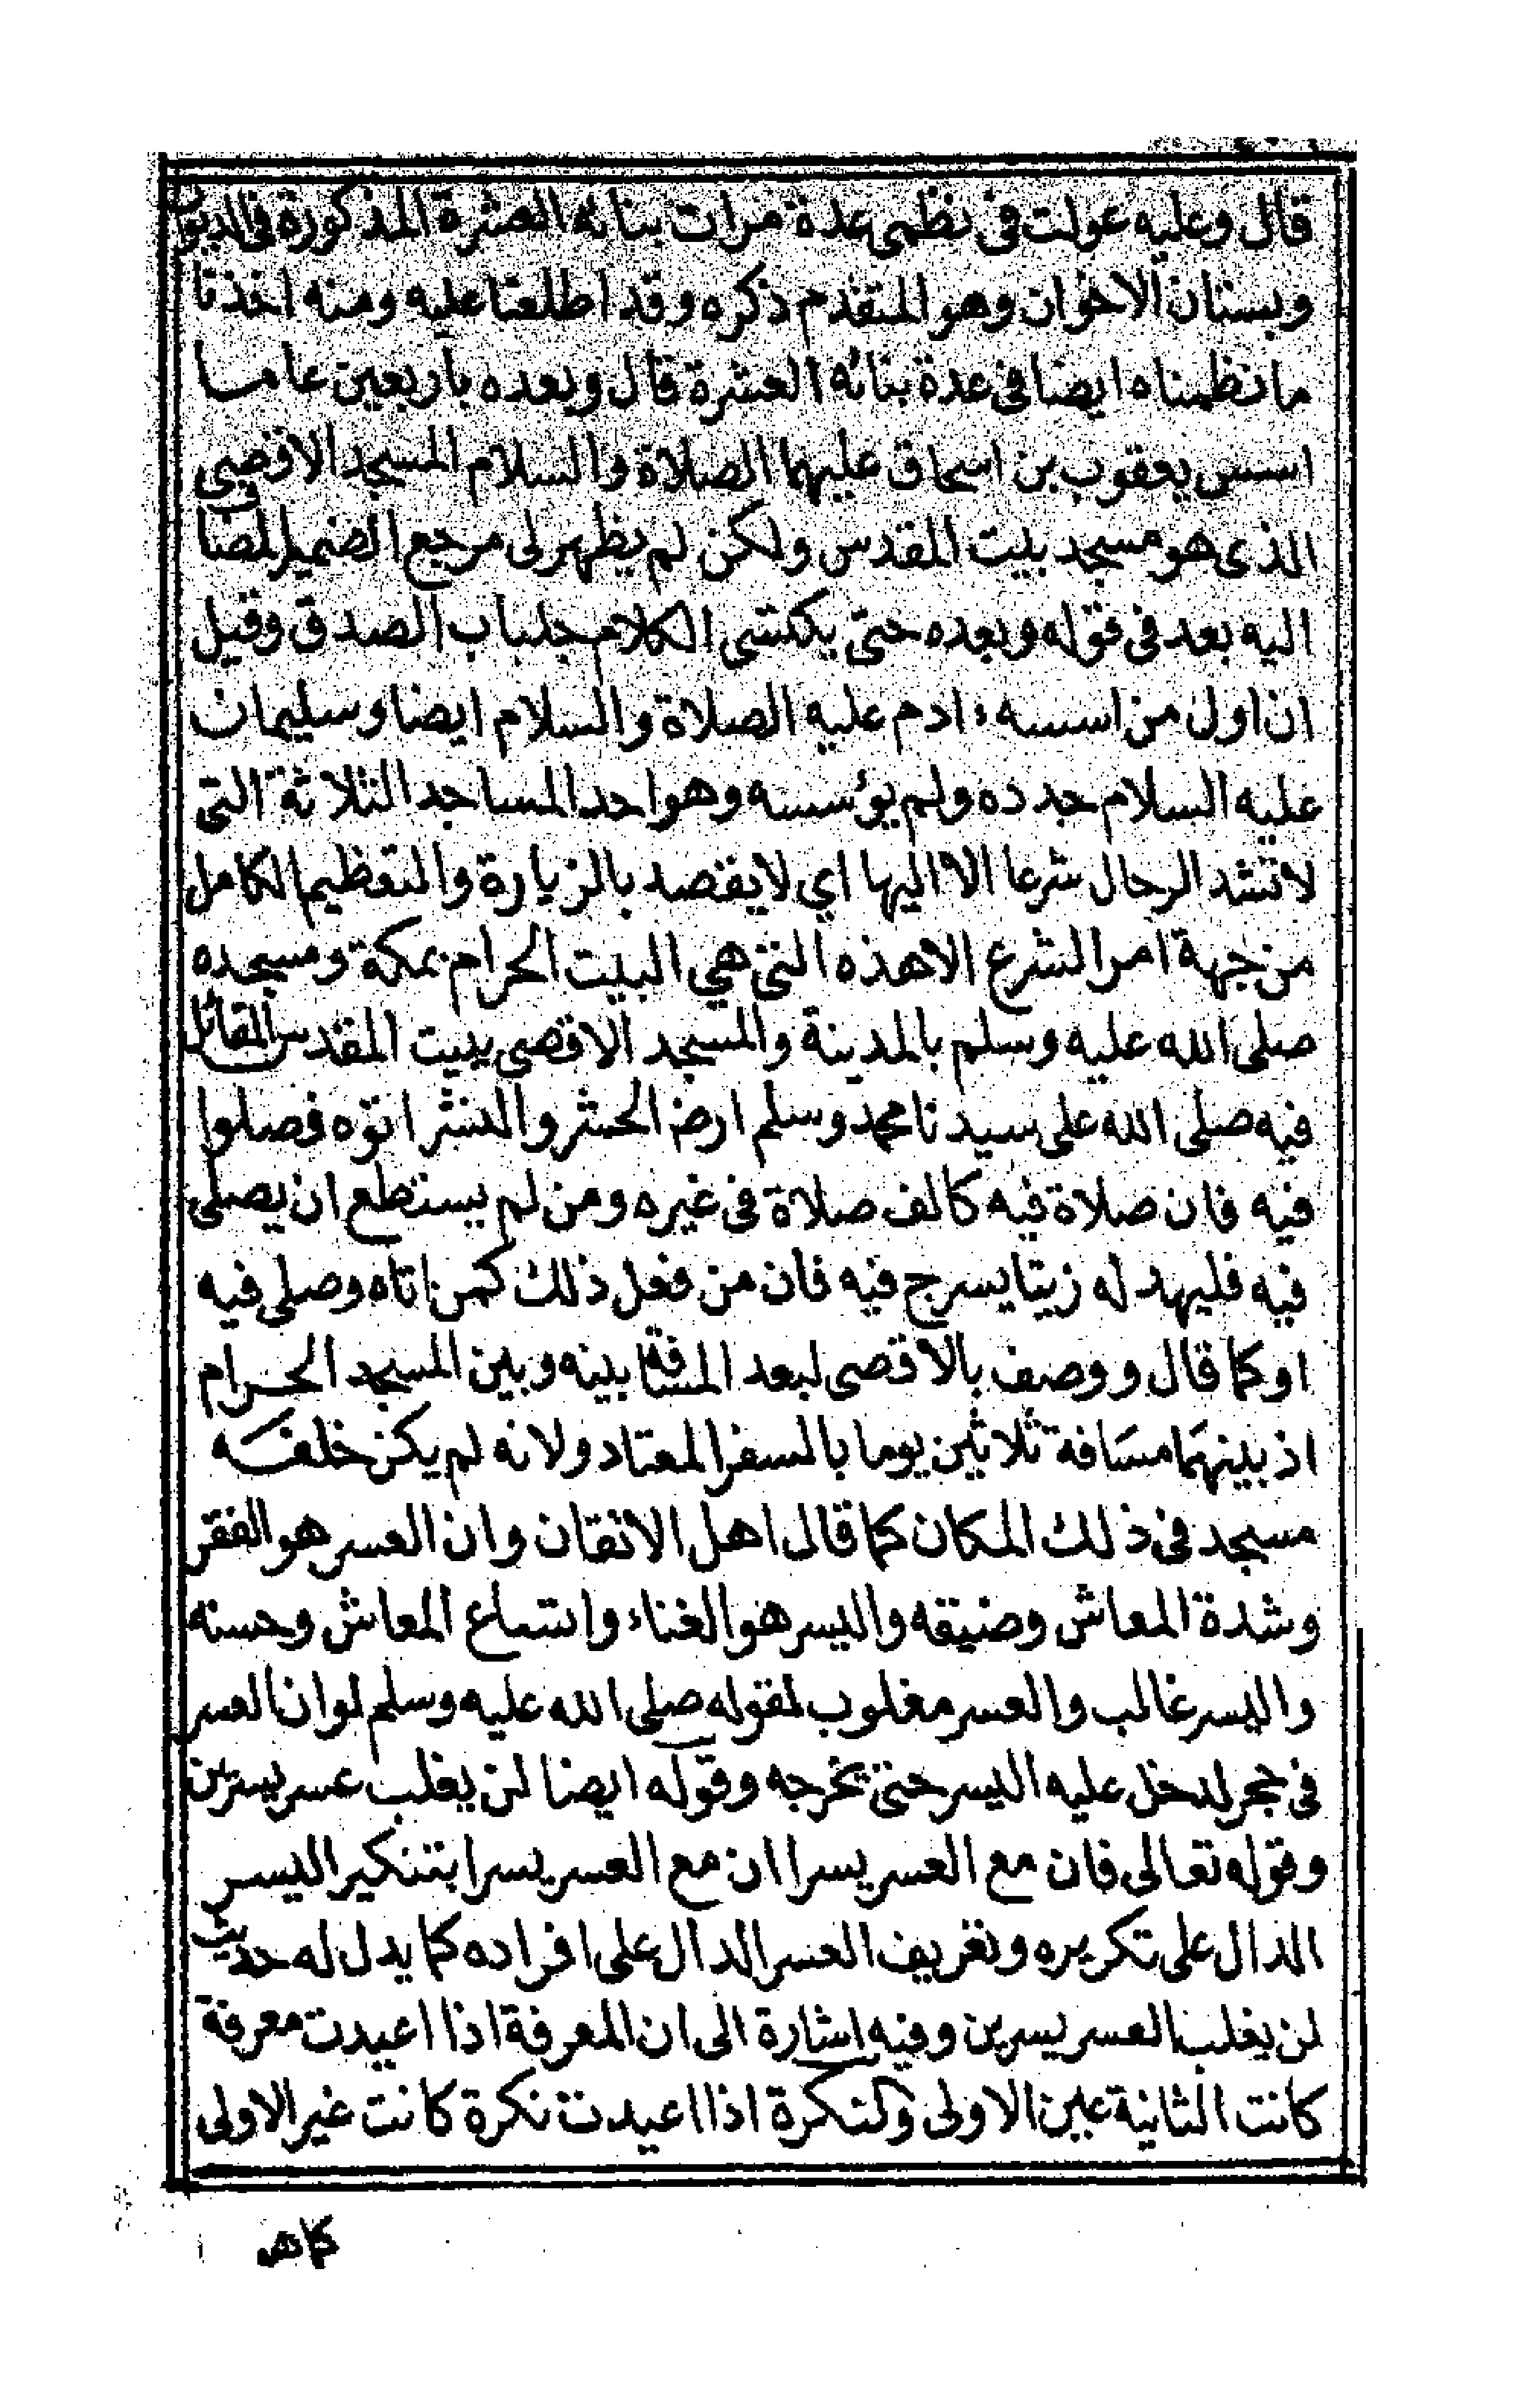 قال وعليه عولت في نظمي عدة مرات بنائه العشرة المذكورة في الديوان
وبستان الاخوان وهو المتقدم ذكره وقد اطلعنا عليه ومنه اخذنا
ما نظمناه ايضا في عدة بنائه العشرة قال وبعده باربعين عاما
اسس يعقوب بن اسحاق عليهما الصلاة والسلام المسجد الاقصى
الذي هو مسجد بيت المقدس ولكن لم يظهر لي مرجع الضمير المضاف
اليه بعد في قوله وبعده حتى يكتسي الكلام جلباب الصدق وقيل
ان اول من اسسه ءادم عليه الصلاة والسلام ايضا وسليمان
عليه السلام جدده ولم يؤسسه وهو احد المساجد الثلاثة التي
لا تشد الرحال شرعا الا اليها اي لا يقصد بالزيارة والتعظيم الكامل
من جهة امر الشرع الا هذه التي هي البيت الحرام بمكة ومسجده
صلى الله عليه وسلم بالمدينة والمسجد الاقصى ببيت المقدس القائل
فيه صلى الله على سيدنا محمد وسلم ارض الحشر والنشر اتوه فصلوا
فيه فان صلاة فيه كالف صلاة في غيره ومن لم يستطع ان يصلي
فيه فليهد له زيتا يسرج فيه فان من فعل ذلك كمن اتاه وصلى فيه
او كما قال ووصف بالاقصى لبعد المسافة بينه وبين المسجد الحرام
اذ بينهما مسافة ثلاثين يوما بالسفر المعتاد ولانه لم يكن خلفه
مسجد في ذلك المكان كما قال اهل الاتقان وان العسر هو الفقر
وشدة المعاش وضيقه واليسر هو الغناء واتساع المعاش وحسنه
واليسر غالب والعسر مغلوب لقوله صلى الله عليه وسلم لو ان العسر
في حجر لدخل عليه اليسر حتى يخرجه وقوله ايضا لن يغلب عسر يسرين
وقوله تعالى فان مع العسر يسرا ان مع العسر يسرا بتنكير اليسر
الدال على تكريره وتعريف العسر الدال على افراده كما يدل له حديث
لن يغلب العسر يسرين وفيه اشارة الى ان المعرفة اذا اعيدت معرفة
كانت الثانية عين الاولى وكنكرة اذا اعيدت نكرة كانت غير الاولى
كما هي